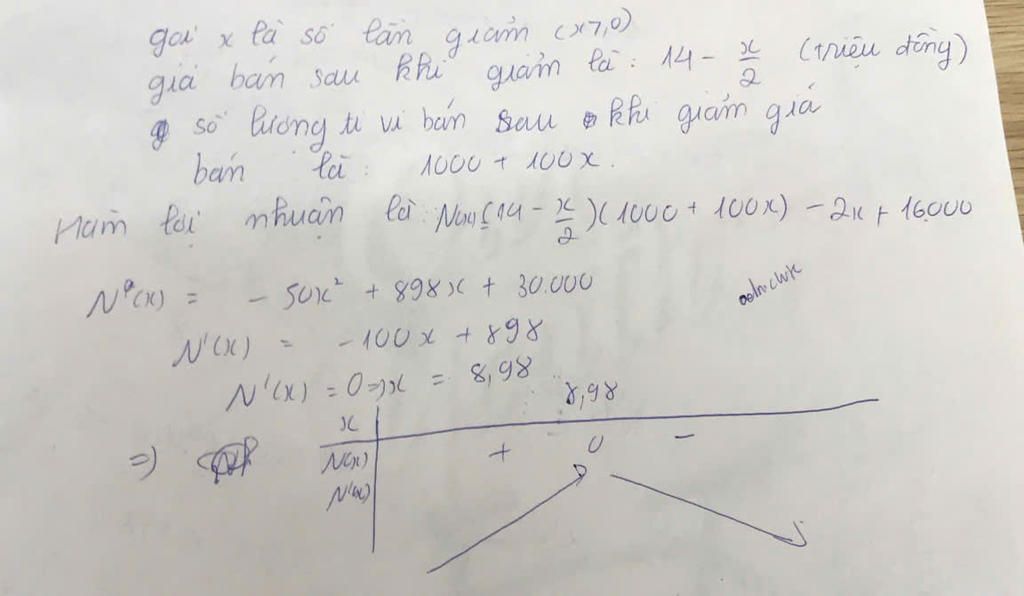 gọi x là số lần giảm (x≥0)
giá bán sau khi giảm là: 14 - x/2 (triệu đồng)
số lượng ti vi bán sau khi giảm giá
bán là: 1000 + 100x.
Hàm lợi nhuận là: N(x) = (14 - x/2)(1000 + 100x) - 2x + 16000
N(x) = - 50x² + 898x + 30.000
N'(x) = -100x + 898
N'(x) = 0 => x = 8,98
x 8,98
=> N(x) + 0 -
N'(x)